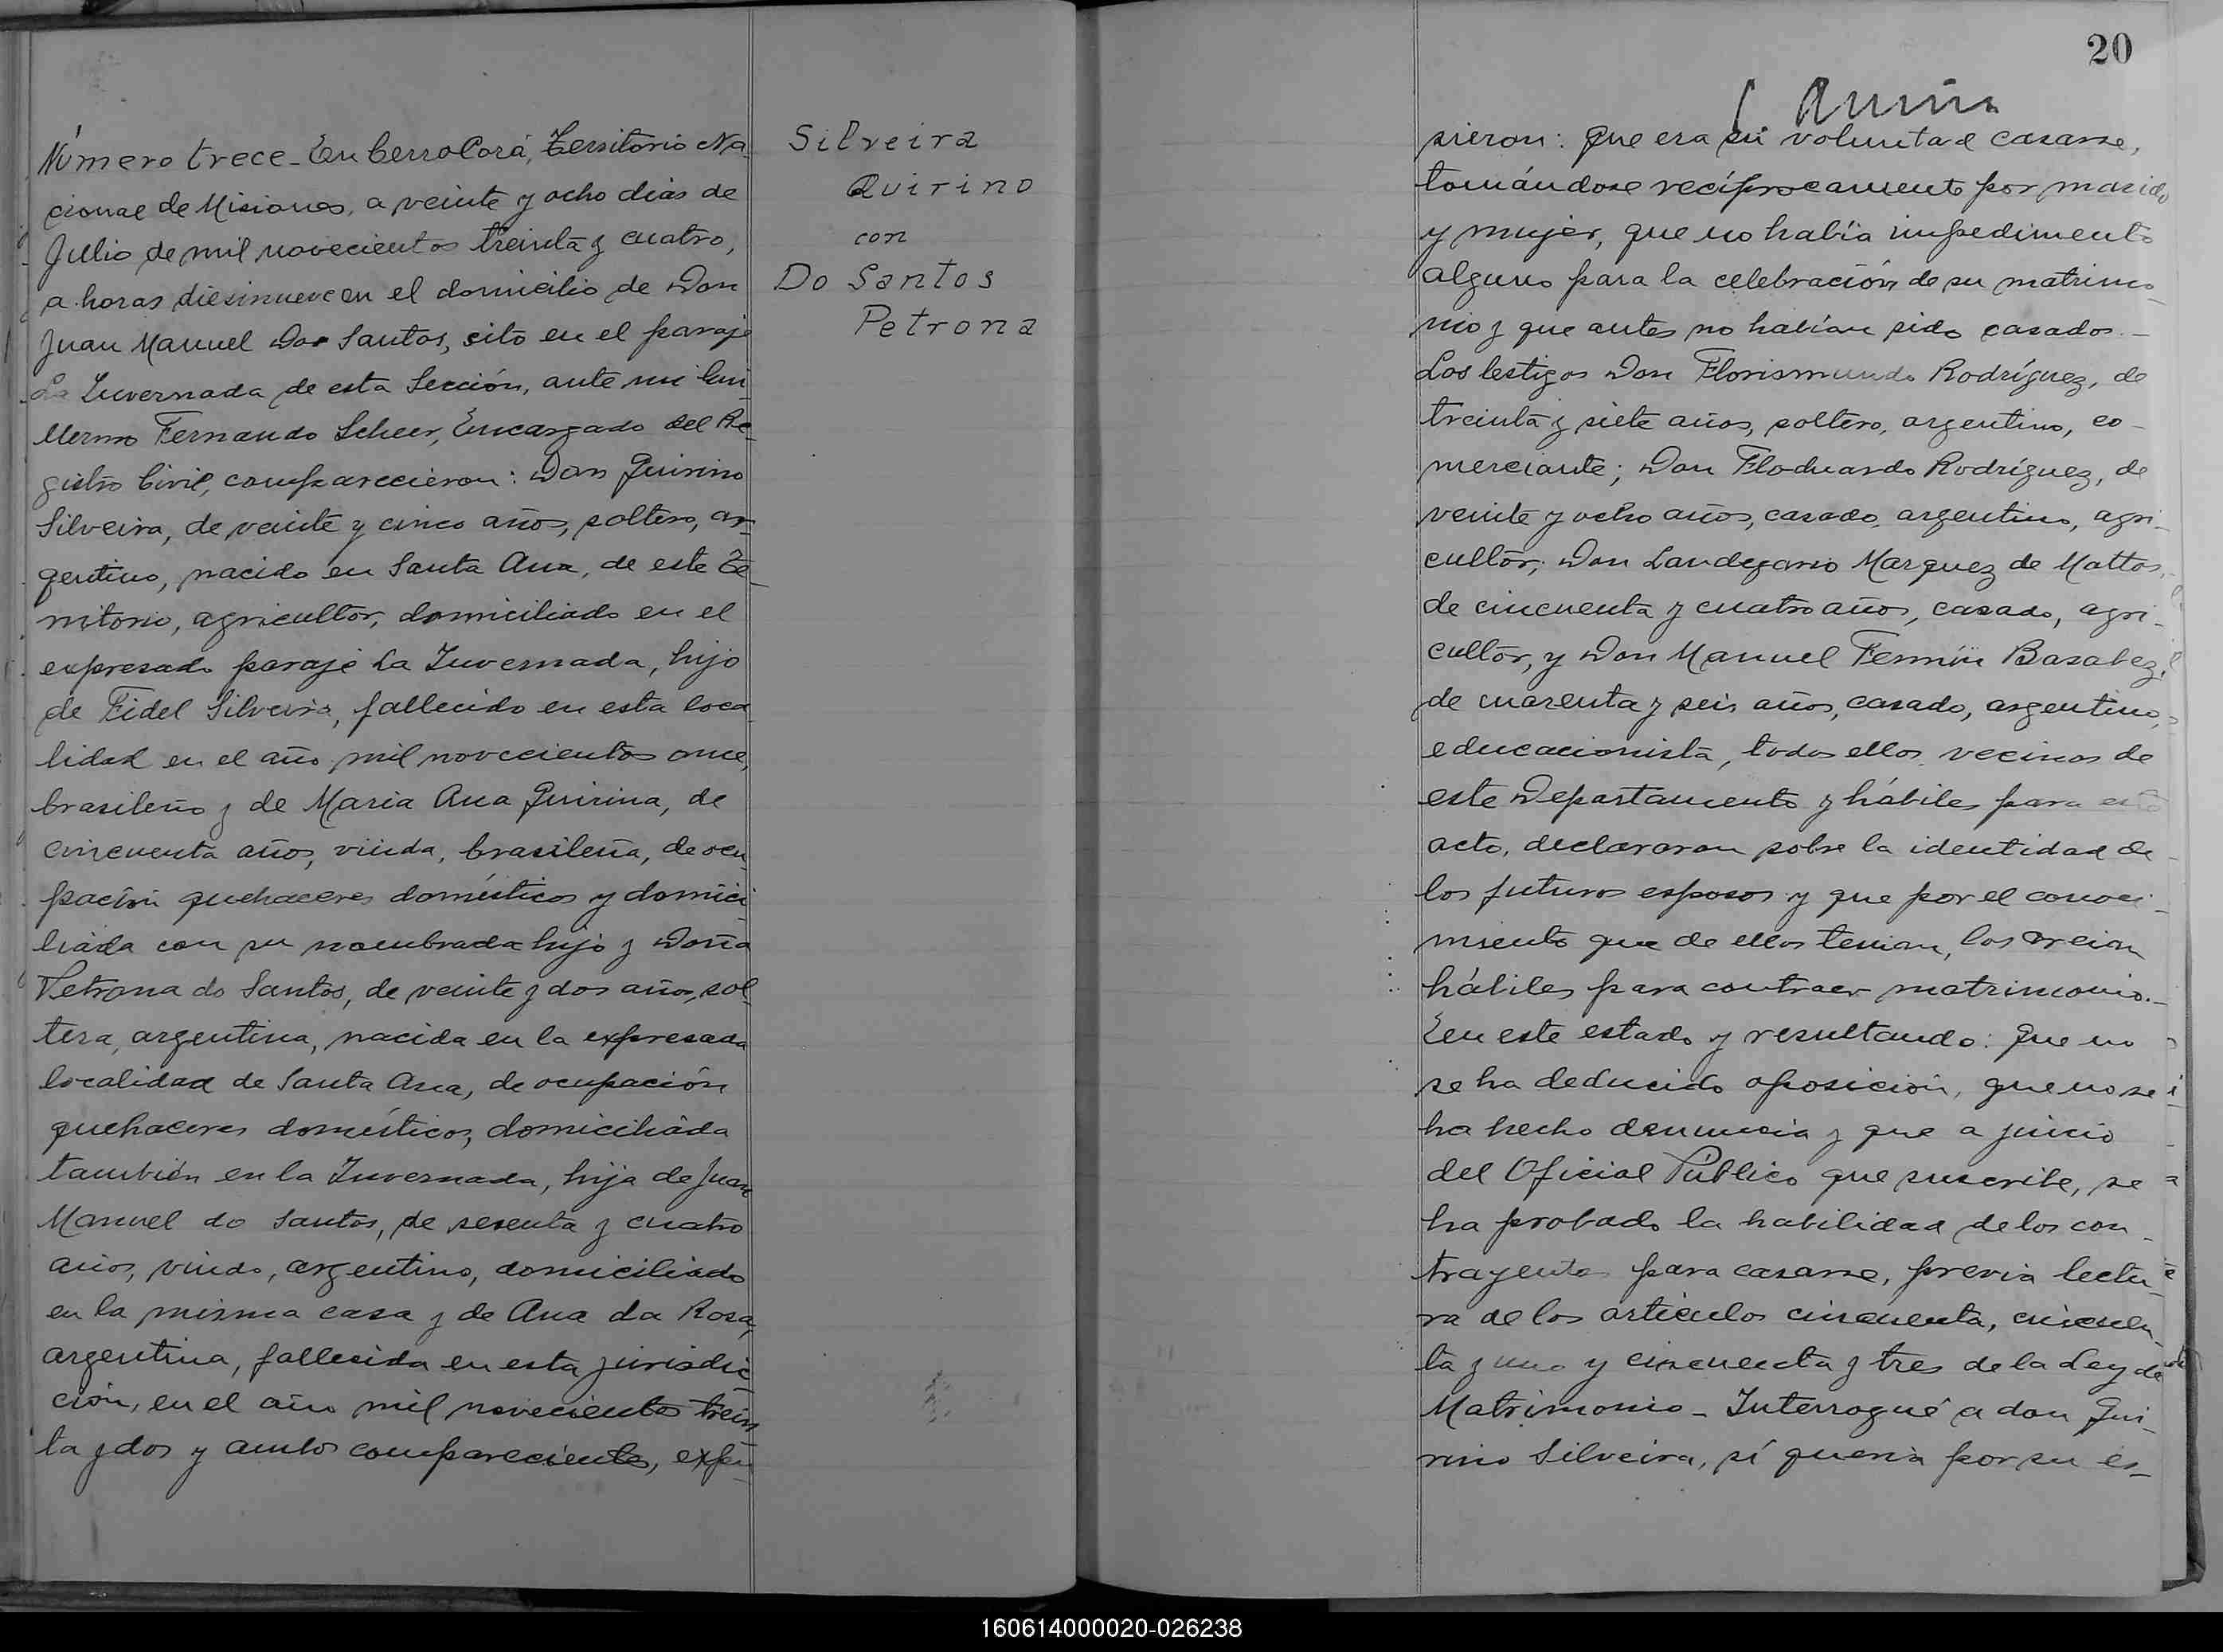 Número trece - En Cerro Corá, Territorio Na-
cional de Misiones, a veinte y ocho dias de
Julio de mil novecientos treinta y cuatro,
a horas diesinueve en el domicilio de Don
Juan Manuel Dos Santos, sito en el paraje
La Invernada de esta Sección, ante mi Gui-
llermo Fernando Scheer, Encargado del Re-
gistro Civil, comparecieron: Don Quirino
Silveira, de veinte y cinco años, soltero, ar-
gentino, nacido en Santa Ana, de este Te-
rritorio, agricultor, domiciliado en el
expresado paraje La Invernada, hijo
de Fidel Silveira, fallecido en esta loca-
lidad en el año mil novecientos once,
brasileño y de Maria Ana Quirina, de
cincuenta años, viuda, brasileña, de ocu-
pación quehaceres domésticos y domici-
liada con su nombrado hijo y Doña
Petrona do Santos, de veinte y dos años, sol-
tera, argentina, nacida en la expresada
localidad de Santa Ana, de ocupación
quehaceres domésticos, domiciliada
también en la Invernada, hija de Juan
Manuel do Santos, de sesenta y cuatro
años, viudo, argentino, domiciliado
en la misma casa y de Ana da Rosa,
argentina, fallecida en esta jurisdic-
ción, en el año mil novecientos trein-
ta y dos y ambos comparecientes, expu-
Silveira
Quirino
con
Do Santos
Petrona
20
sieron: que era su voluntad casarse,
tomándose recíprocamente por marido
y mujer, que no había impedimento
alguno para la celebración de su matrimo-
nio y que antes no habían sido casados.-
Los testigos Don Florismundo Rodríguez, de
treinta y siete años, soltero, argentino, co-
merciante; Don Floduardo Rodríguez, de
veinte y ocho años, casado, argentino, agri-
cultor; Don Landegario Marquez de Mattos,
de cincuenta y cuatro años, casado, agri-
cultor, y Don Manuel Fermín Basabez,
de cuarenta y seis años, casado, argentino,
educacionista, todos ellos vecinos de
este Departamento y hábiles para este
acto, declararon sobre la identidad de
los futuros esposos y que por el conoci-
miento que de ellos tenian, los creian
hábiles para contraer matrimonio.-
En este estado y resultando: que no
se ha deducido oposición, que no se
ha hecho denuncia y que a juicio
del Oficial Público que suscribe, se
ha probado la habilidad de los con-
trayentes para casarse, previa lectu-
ra de los artículos cincuenta, cincuen-
ta y uno y cincuenta y tres de la Ley de
Matrimonio - Interrogué a don Qui-
rino Silveira, sí quería por su es-
160614000020-026238